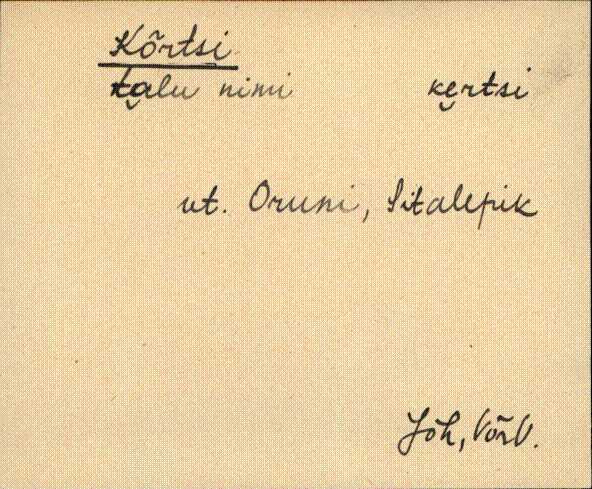 Kõrtsi
talu nimi ke̮rtsi
vt. Oruni, Sitalepik
Jõh, VõrV.